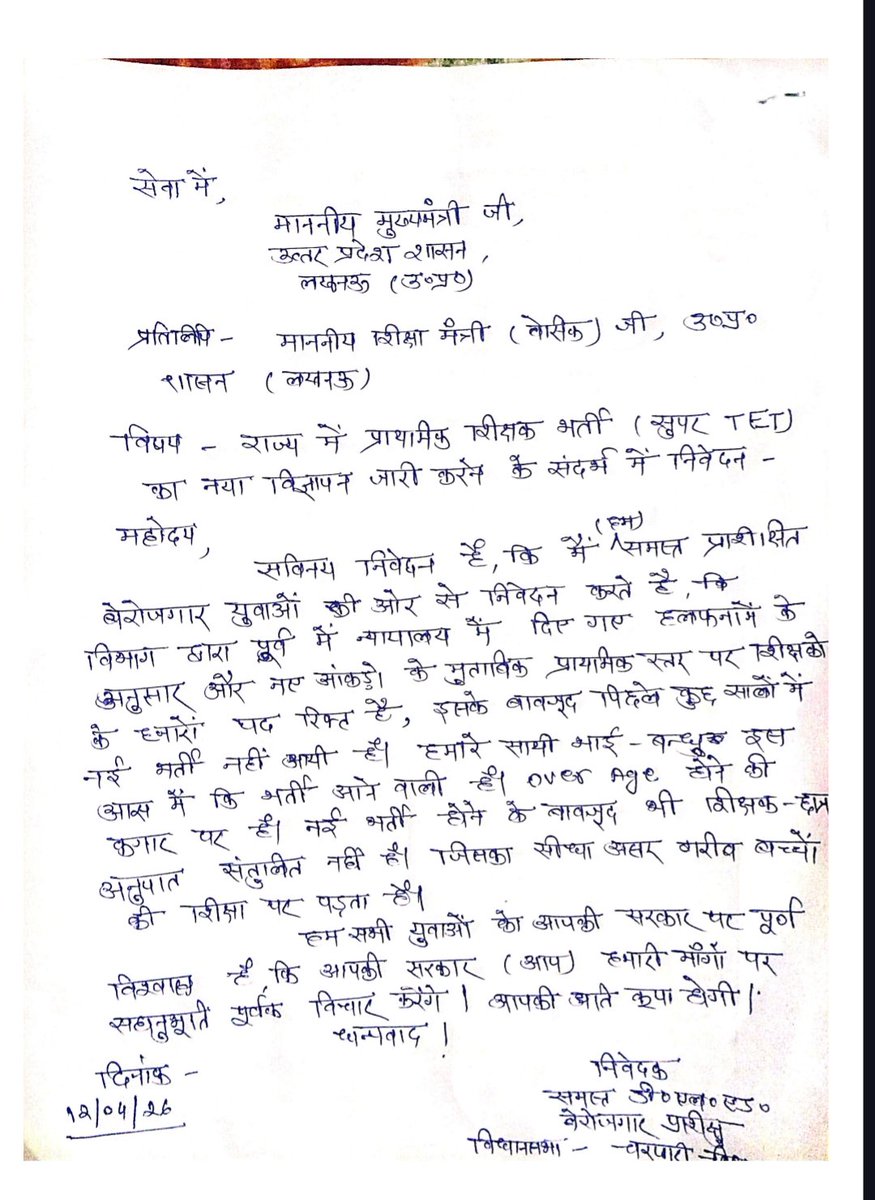 सेवा में,
माननीय मुख्यमंत्री जी,
उत्तर प्रदेश शासन,
लखनऊ (उ०प्र०)
प्रतिलिपि - माननीय शिक्षा मंत्री (बेसिक) जी, उ०प्र०
शासन (लखनऊ)
विषय - राज्य में प्राथमिक शिक्षक भर्ती (सुपर TET)
का नया विज्ञापन जारी करने के संदर्भ में निवेदन -
महोदय,
सविनय निवेदन है, कि मैं (हम) समस्त प्रशिक्षित
बेरोजगार युवाओं की ओर से निवेदन करते है, कि
विभाग द्वारा पूर्व में न्यायालय में दिए गए हलफनामें के
अनुसार और नए आंकड़ो के मुताबिक प्राथमिक स्तर पर शिक्षको
के हजारों पद रिक्त है, इसके बावजूद पिछले कुछ सालों में
नई भर्ती नहीं आयी है। हमारे साथी भाई - बन्धु इस
आस में कि भर्ती आने वाली है। over Age होने की
कगार पर है। नई भर्ती होने के बावजूद भी शिक्षक - छात्र
अनुपात संतुलित नहीं है। जिसका सीधा असर गरीब बच्चों
की शिक्षा पर पड़ता है।
हम सभी युवाओं का आपकी सरकार पर पूर्ण
विश्वास है, कि आपकी सरकार (आप) हमारी माँगों पर
सहानुभूति पूर्वक विचार करेंगे। आपकी अति कृपा होगी।
धन्यवाद !
दिनांक -
12/04/26
निवेदक
समस्त डी०एल०एड०
बेरोजगार प्रशिक्षु
विधानसभा -